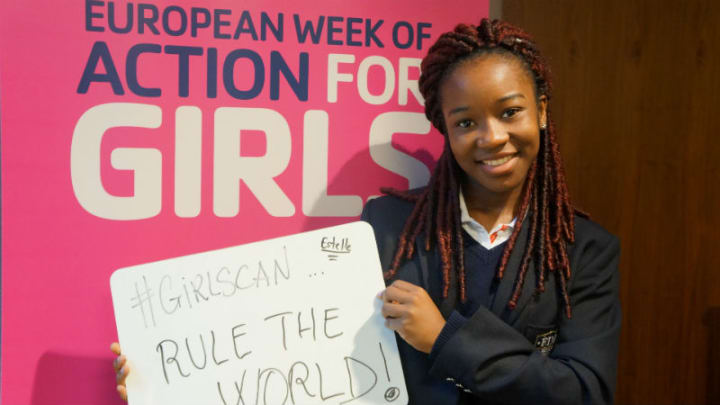 EUROPEAN WEEK OF
ACTION FOR
GIRLS
Estelle
#GiRLSCAN ...
RULE THE
WORLD!